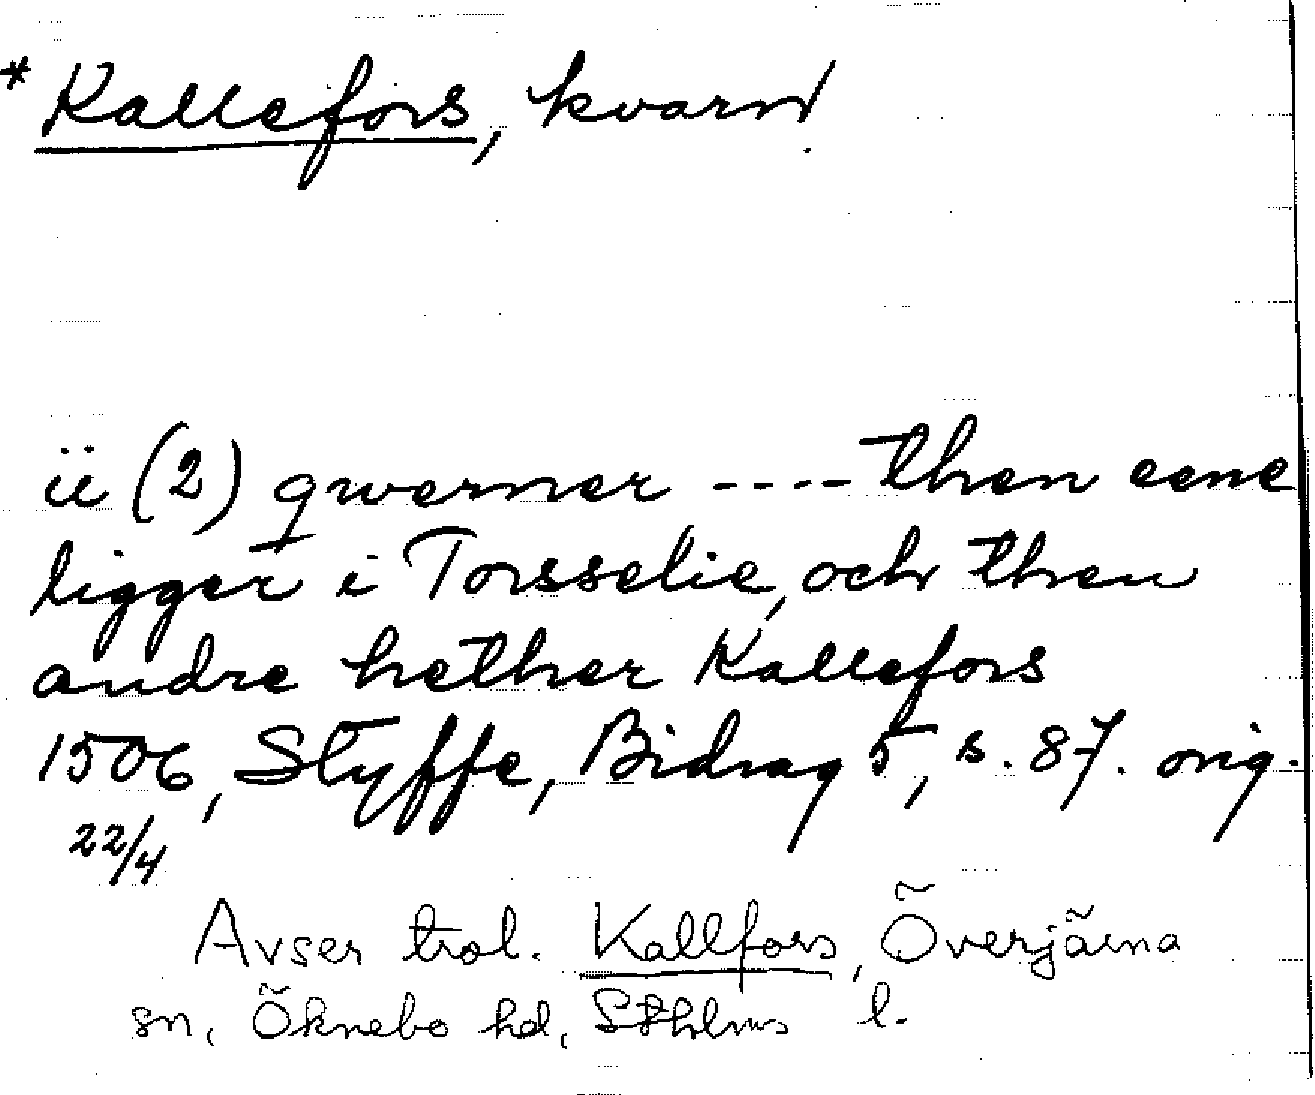 * Kallefors, kvarn!
ii (2) qwerner ---- then eene
ligger i Torsselie, och then
andre hether Kallefors
1506, Styffe, Bidrag 5, s. 87. orig.
22/4
Avser trol. Kallfors, Överjärna
sn, Öknebo hd, Sthlms l.